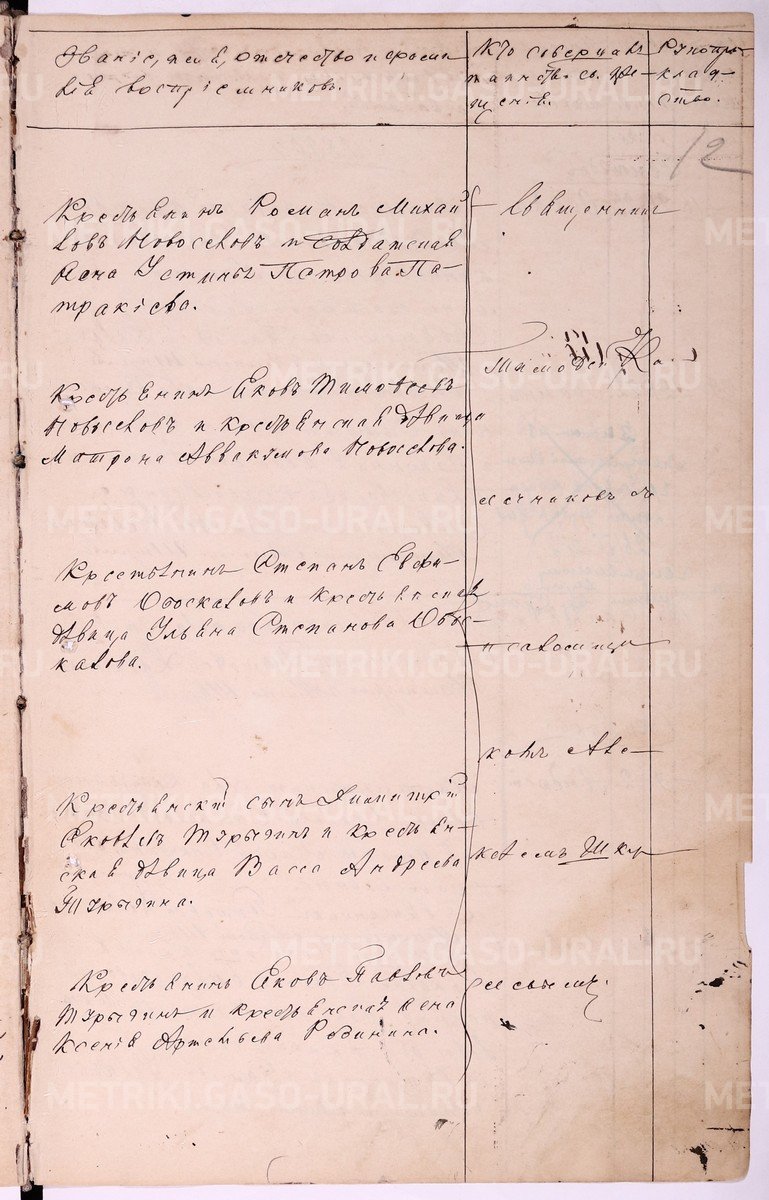 Званіе, имя, отчество и фамил
лія воспріемниковъ.
Кто совершалъ
таинство св. кре-
щенія.
Рукопри-
клад-
ство.
12
Крестьянинъ Романъ Михай
ловъ Новоселовъ и солдатская
жена Устинья Петрова Па-
тракіева.
Крестьянинъ Яковъ Тимофеевъ
Новоселовъ и крестьянская дѣвица
Матрона Аввакумова Новоселова.
Крестьянинъ Степанъ Евфи-
мовъ Обоскаловъ и крестьянская
дѣвица Ульяна Степанова Обос-
калова.
Крестьянскій сынъ Димитрій
Яковлевъ Турыгинъ и крестьян-
ская дѣвица Васса Андреева
Турыгина.
Крестьянинъ Яковъ Павловъ
Турыгинъ и крестьянская жена
Ксенія Артемьева Родинина.
Священник
съ
псаломщи
комъ Але-